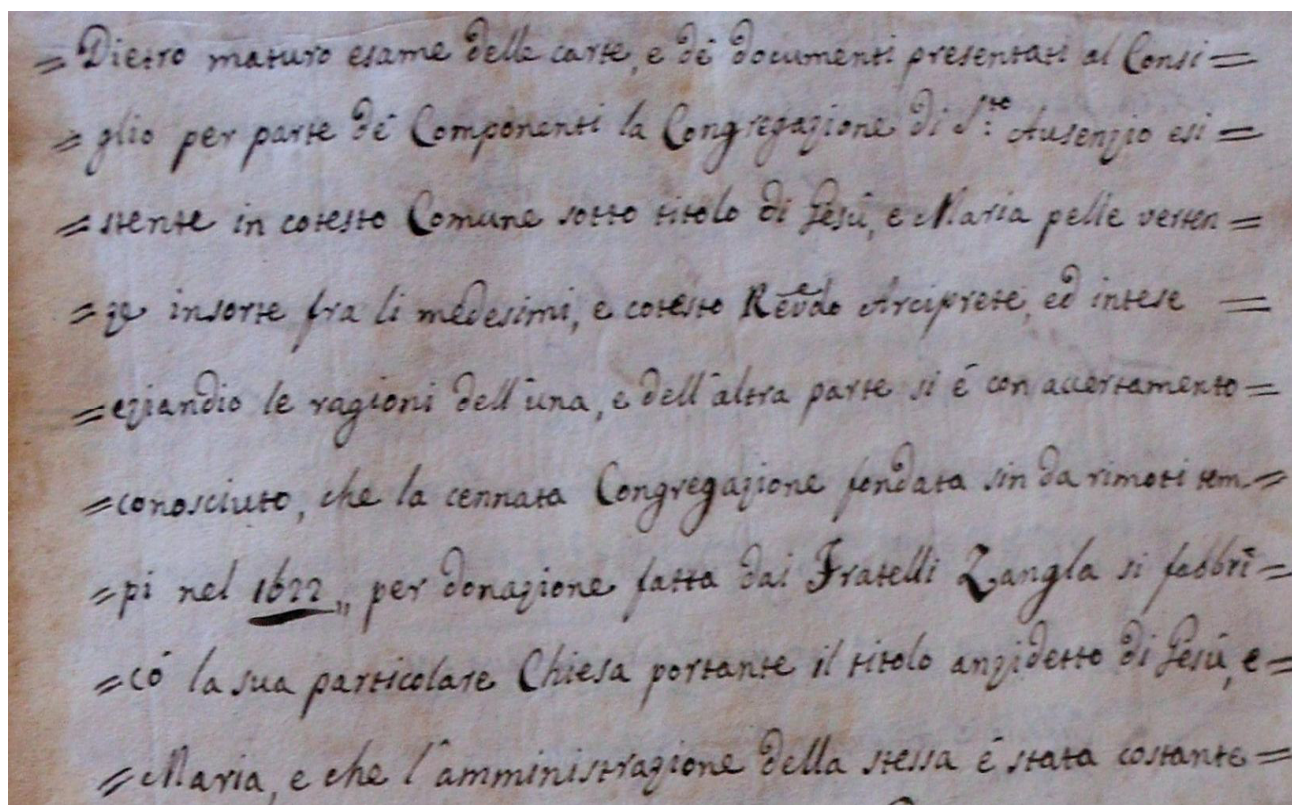 = Dietro maturo esame delle carte, e dè documenti presentati al Consi =
= glio per parte dè Componenti la Congregazione di S.to Ausenzio esi =
= stente in cotesto Comune sotto titolo di Gesù, e Maria pelle verten =
= ze insorte fra li medesimi, e cotesto Revdo Arciprete, ed intese =
= eziandio le ragioni dell'una, e dell'altra parte si é con accertamento =
= conosciuto, che la cennata Congregazione fondata sin da rimoti tem =
= pi nel 1622,, per donazione fatta dai Fratelli Zangla si fabbri =
= có la sua particolare Chiesa portante il titolo anzidetto di Gesù, e =
= Maria, e che l'amministrazione della stessa é stata costante =